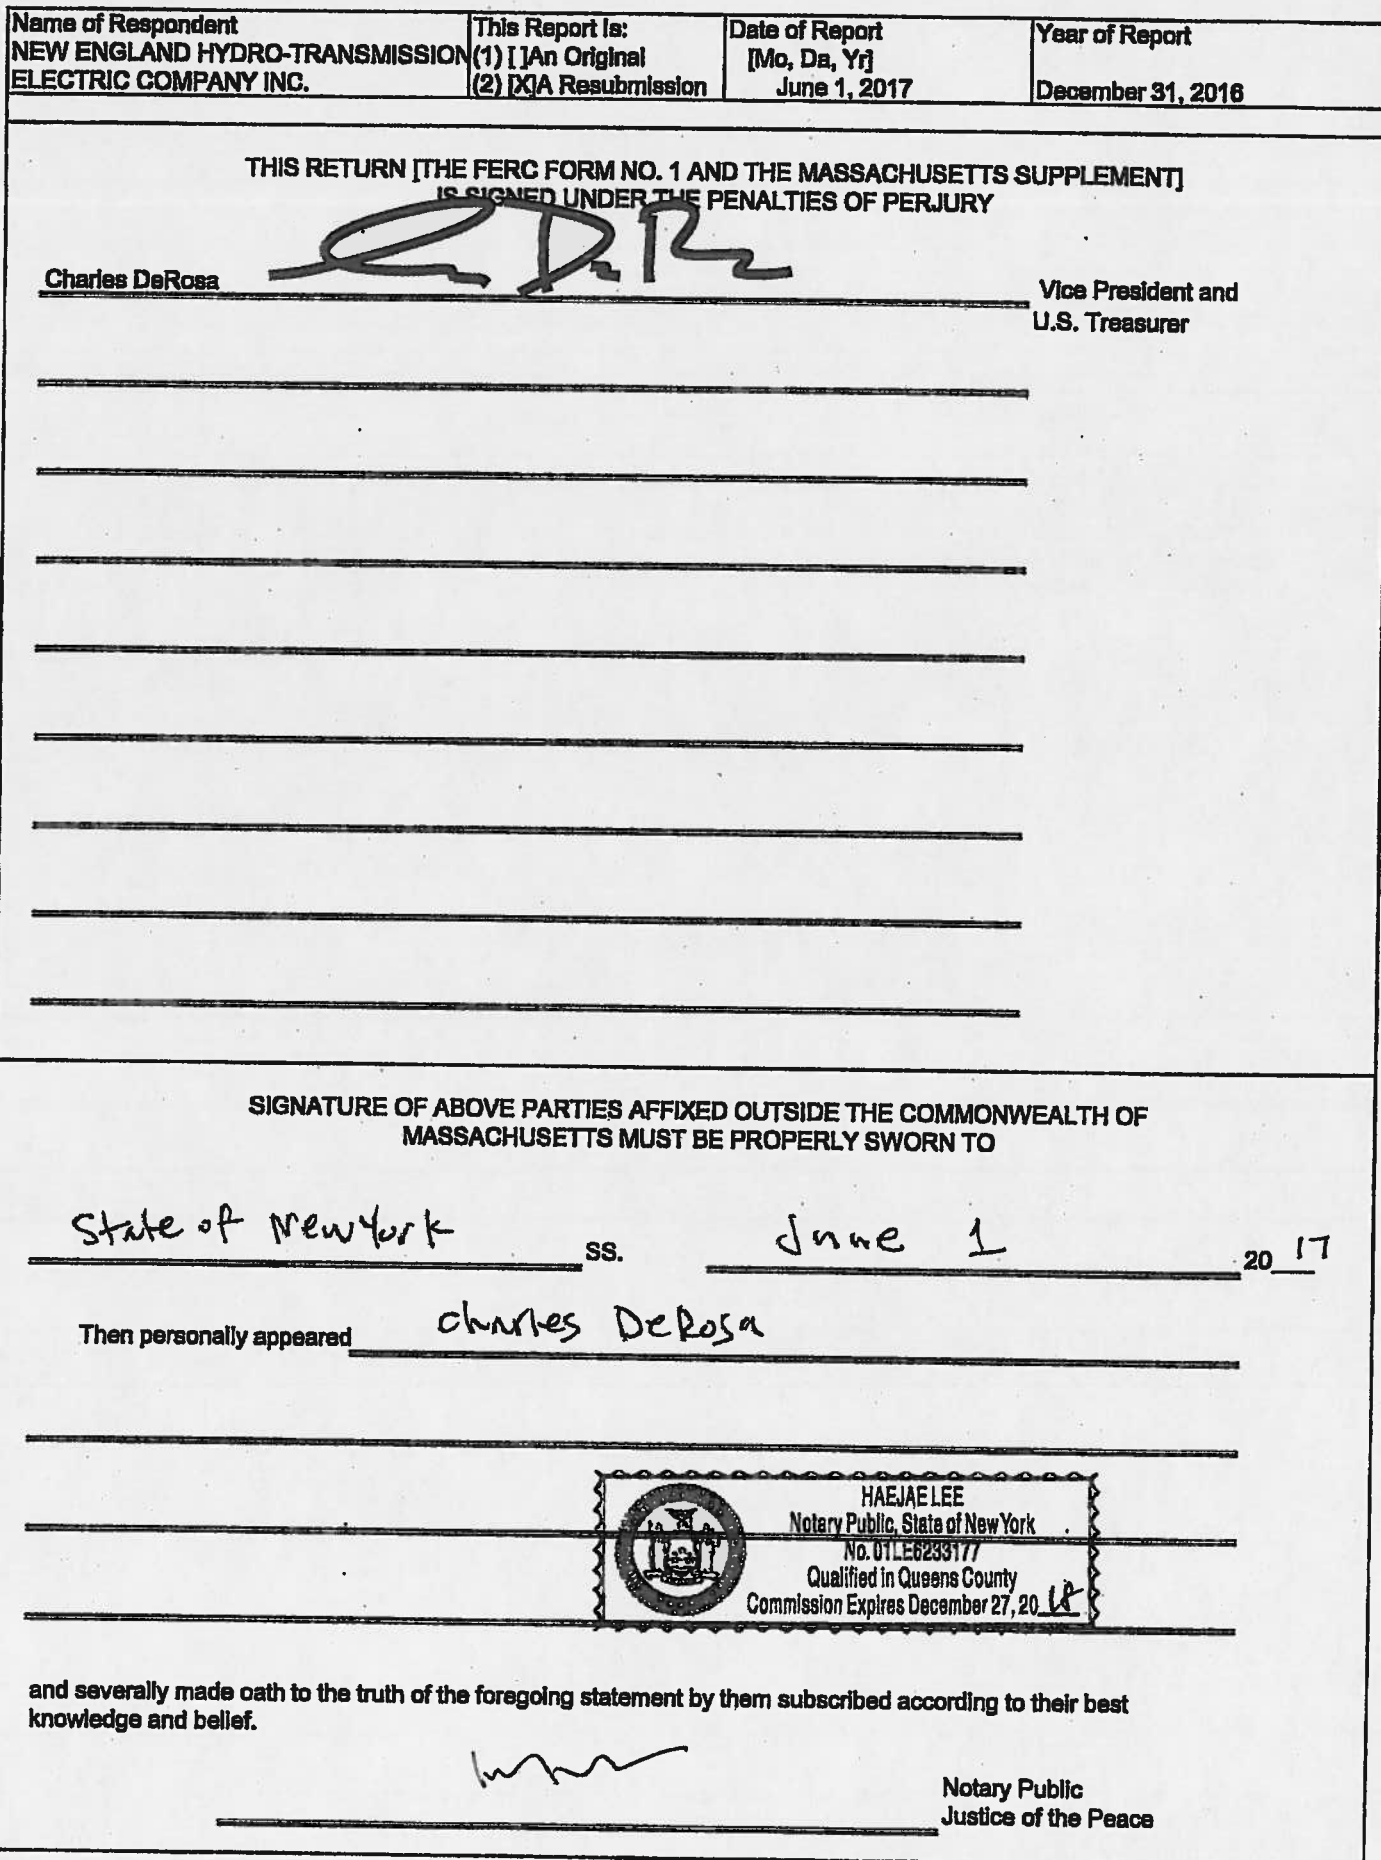 Name of Respondent
NEW ENGLAND HYDRO-TRANSMISSION
ELECTRIC COMPANY INC.
This Report Is:
(1) [ ]An Original
(2) [X]A Resubmission
Date of Report
[Mo, Da, Yr]
June 1, 2017
Year of Report
December 31, 2016
THIS RETURN [THE FERC FORM NO. 1 AND THE MASSACHUSETTS SUPPLEMENT]
IS SIGNED UNDER THE PENALTIES OF PERJURY
Charles DeRosa
Vice President and
U.S. Treasurer
SIGNATURE OF ABOVE PARTIES AFFIXED OUTSIDE THE COMMONWEALTH OF
MASSACHUSETTS MUST BE PROPERLY SWORN TO
State of New York SS. June 1 20 17
Then personally appeared Charles DeRosa
HAEJAE LEE
Notary Public, State of New York
No. 01LE6233177
Qualified in Queens County
Commission Expires December 27, 20 18
and severally made oath to the truth of the foregoing statement by them subscribed according to their best
knowledge and belief.
Notary Public
Justice of the Peace